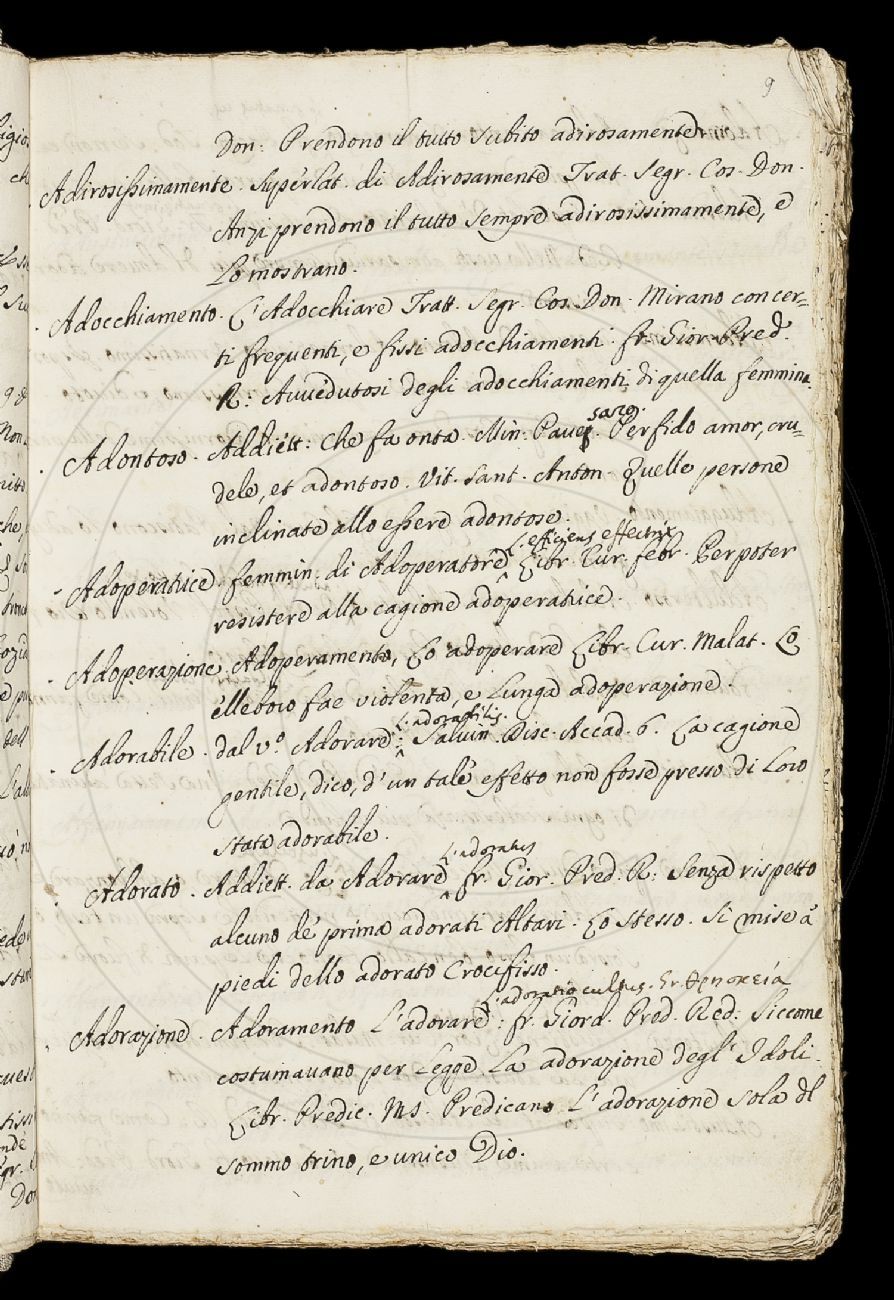 9
Don: Prendono il tutto subito adirosamente
Adirosissimamente. Superlat. di Adirosamente Trat. Segr. Cos. Don.
Anzi prendono il tutto sempre adirosissimamente, e
Lo mostrano.
Adocchiamento. L'Adocchiare Tratt. Segr. Cos. Don. Mirano con cer=
ti frequenti, e fissi adocchiamenti. fr. Gior. Pred.
R: Avvedutosi degli adocchiamenti di quella femmina.
sareg.
Adontoso. Addiett: Che fa onta. Min. Pavej. Perfido amor, cru=
dele, et adontoso. Vit. Sant. Anton. Quelle persone
inclinate allo essere adontose.
L. efficiens effectrix
Adoperatrice femmin: di Adoperatore Libr. Cur. febr. Per poter
resistere alla cagione adoperatrice.
Adoperazione. Adoperamento, Lo adoperare Libr. Cur. Malat. Lo
elleboro fae violenta, e lunga adoperazione.
L. adorabilis.
Adorabile. dal v.º Adorare: Salvin. Disc. Accad. 6. La cagione
gentile, dico, d'un tale effetto non fosse presso di Loro
stata adorabile.
L. adoratus
Adorato. Addiett. da Adorare fr. Gior. Pred. R: Senza rispetto
alcuno de' prima adorati Altari. Lo stesso. Si mise a'
piedi dello adorato Crocifisso.
L. adoratio cultus. Gr. θρησκεία
Adorazione. Adoramento L'adorare: fr. Giord. Pred. Red: Siccome
costumavano per Legge La adorazione degl' Idoli.
Libr. Predic. Ms. Predicano L'adorazione sola dl
sommo trino, e unico Dio.